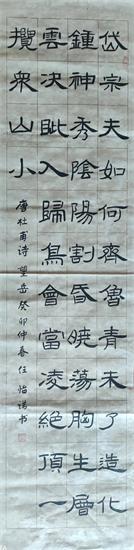 岱宗夫如何齊魯青未了造化
鍾神秀陰陽割昏曉蕩胸生層
雲決眦入歸鳥會當凌絕頂一
攬衆山小
唐杜甫詩望岳癸卯仲春任怡书